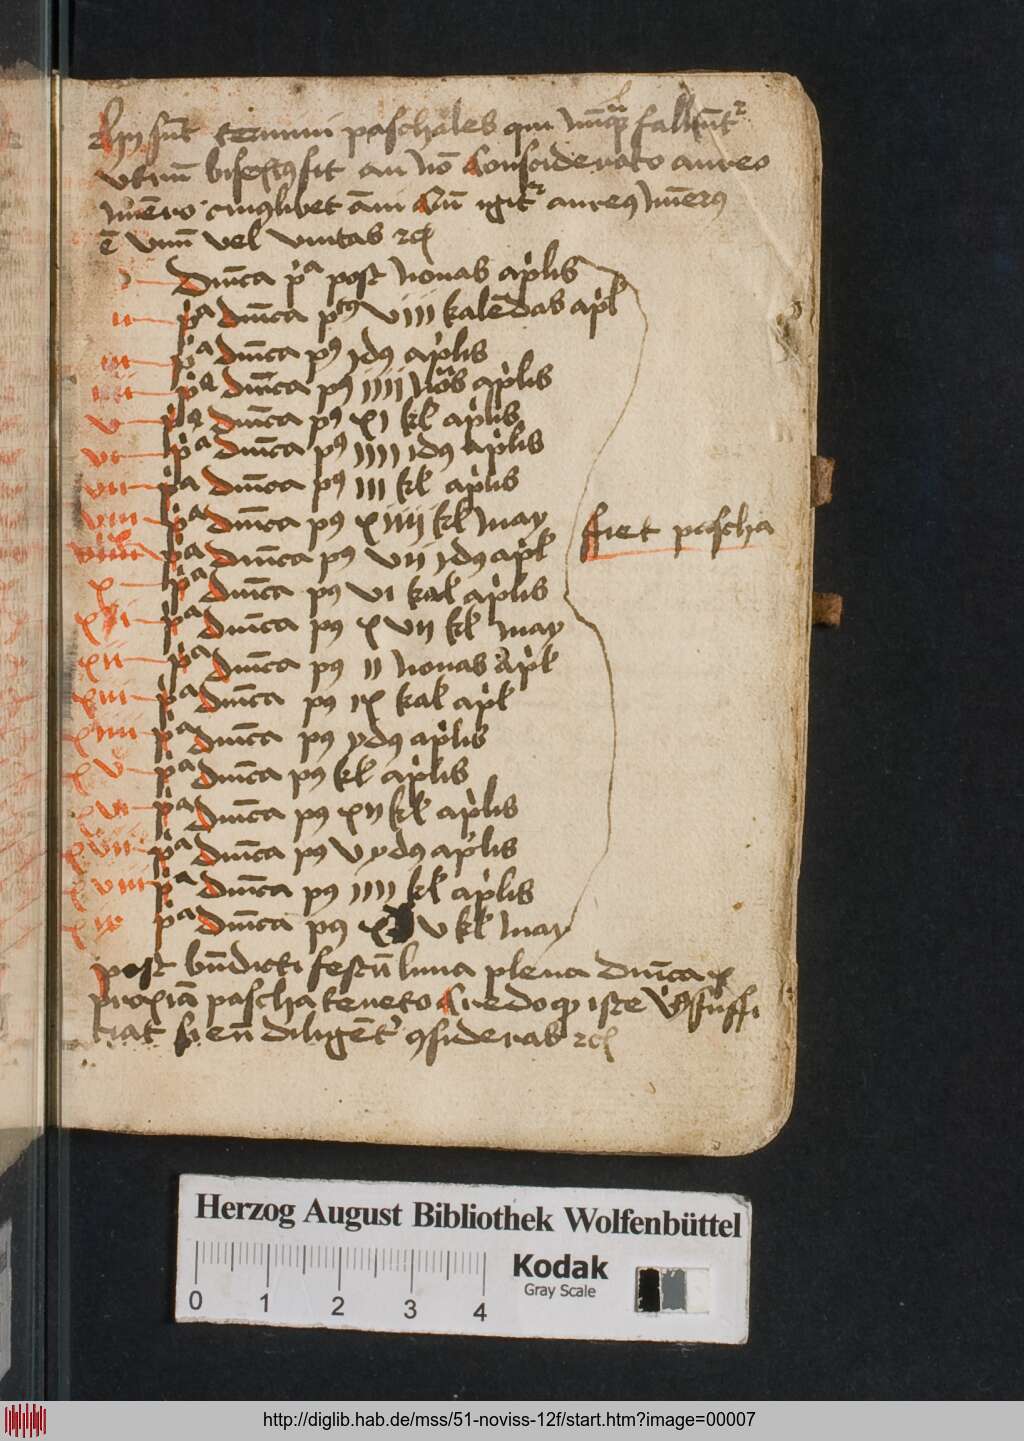 Hii sūt termini paschales qui nūqꝫ fallūtᷣ
vtrū bisextꝯ sit an nō Considerato aureo
nūero cuiꝯlibet āni Cū igitᷣ aureꝯ nūerꝯ
ē vnū vel vnitas ⁊cꝭ
i dn̄ica pᵃ post nonas ap̄lis
ii pᵃ dn̄ica ptꝯ viii kalēdas apl̄
iii pᵃ dn̄ica pꝯ ydꝯ ap̄lis
iiii pᵃ dn̄ica pꝯ iiii nōs ap̄lis
v pᵃ dn̄ica pꝯ xi kl ap̄lis
vi pᵃ dn̄ica pꝯ iiii idꝯ ap̄lis
vii pᵃ dn̄ica pꝯ iii kl ap̄lis
viii pᵃ dn̄ica pꝯ xiiii kl may
fiet pascha
viiii pᵃ dn̄ica pꝯ vii ydꝯ apl̄
x pᵃ dn̄ica pꝯ vi kal ap̄lis
xi pᵃ dn̄ica pꝯ xvii kl may
xii pᵃ dn̄ica pꝯ ii nonas apl̄
xiii pᵃ dn̄ica pꝯ ix kal apl̄
xiiii pᵃ dn̄ica pꝯ ydꝯ ap̄lis
xv pᵃ dn̄ica pꝯ kl ap̄lis
xvi pᵃ dn̄ica pꝯ xii kl ap̄lis
xvii pᵃ dn̄ica pꝯ v ydꝯ ap̄lis
xviii pᵃ dn̄ica pꝯ iiii kl ap̄lis
xix pᵃ dn̄ica pꝯ xv kl may
post bn̄dicti festū luna plena dn̄ica
proxīa pascha teneto Credo qꝫ iste vꝰsꝯ suffi
ciat si eū diligēt᾽ ꝯsideras ⁊cꝭ
Herzog August Bibliothek Wolfenbüttel
Kodak
Gray Scale
0 1 2 3 4
http://diglib.hab.de/mss/51-noviss-12f/start.htm?image=00007